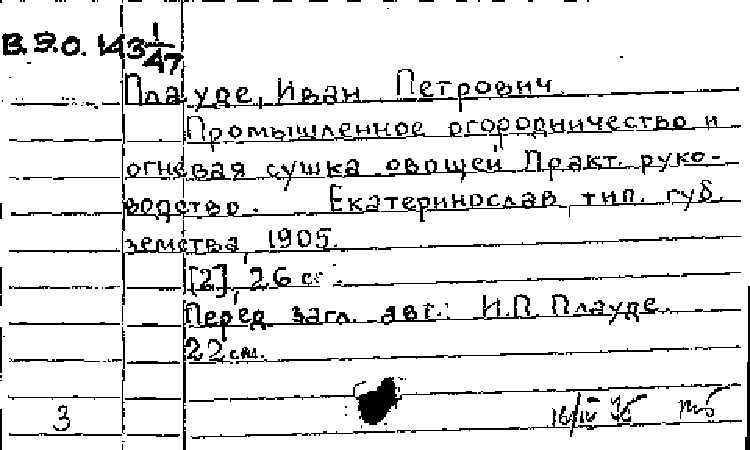 В.Э.О. 143 1/47
Плауде, Иван Петрович
Промышленное огородничество и
огневая сушка овощей Практ. руко-
водство. Екатеринослав, тип. губ.
земства, 1905.
[2], 26 с.
Перед загл. авт.: И.П. Плауде.
22 см.
3 16/IV